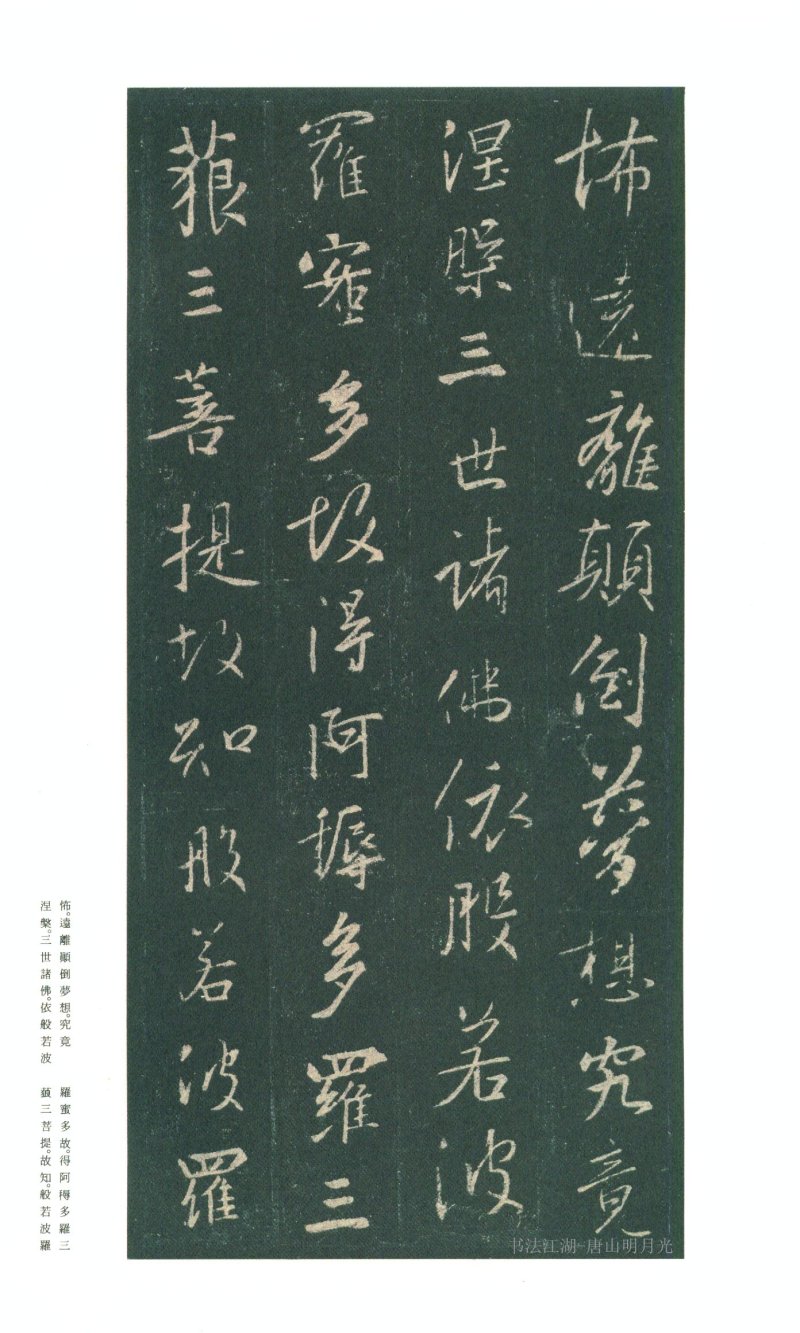 怖遠離顛倒夢想究竟
涅槃三世諸佛依般若波
羅蜜多故得阿耨多羅三
藐三菩提故知般若波羅
怖。遠離顚倒夢想。究竟
涅槃。三世諸佛。依般若波
羅蜜多故。得阿耨多羅三
藐三菩提。故知。般若波羅
书法江湖-唐山明月光